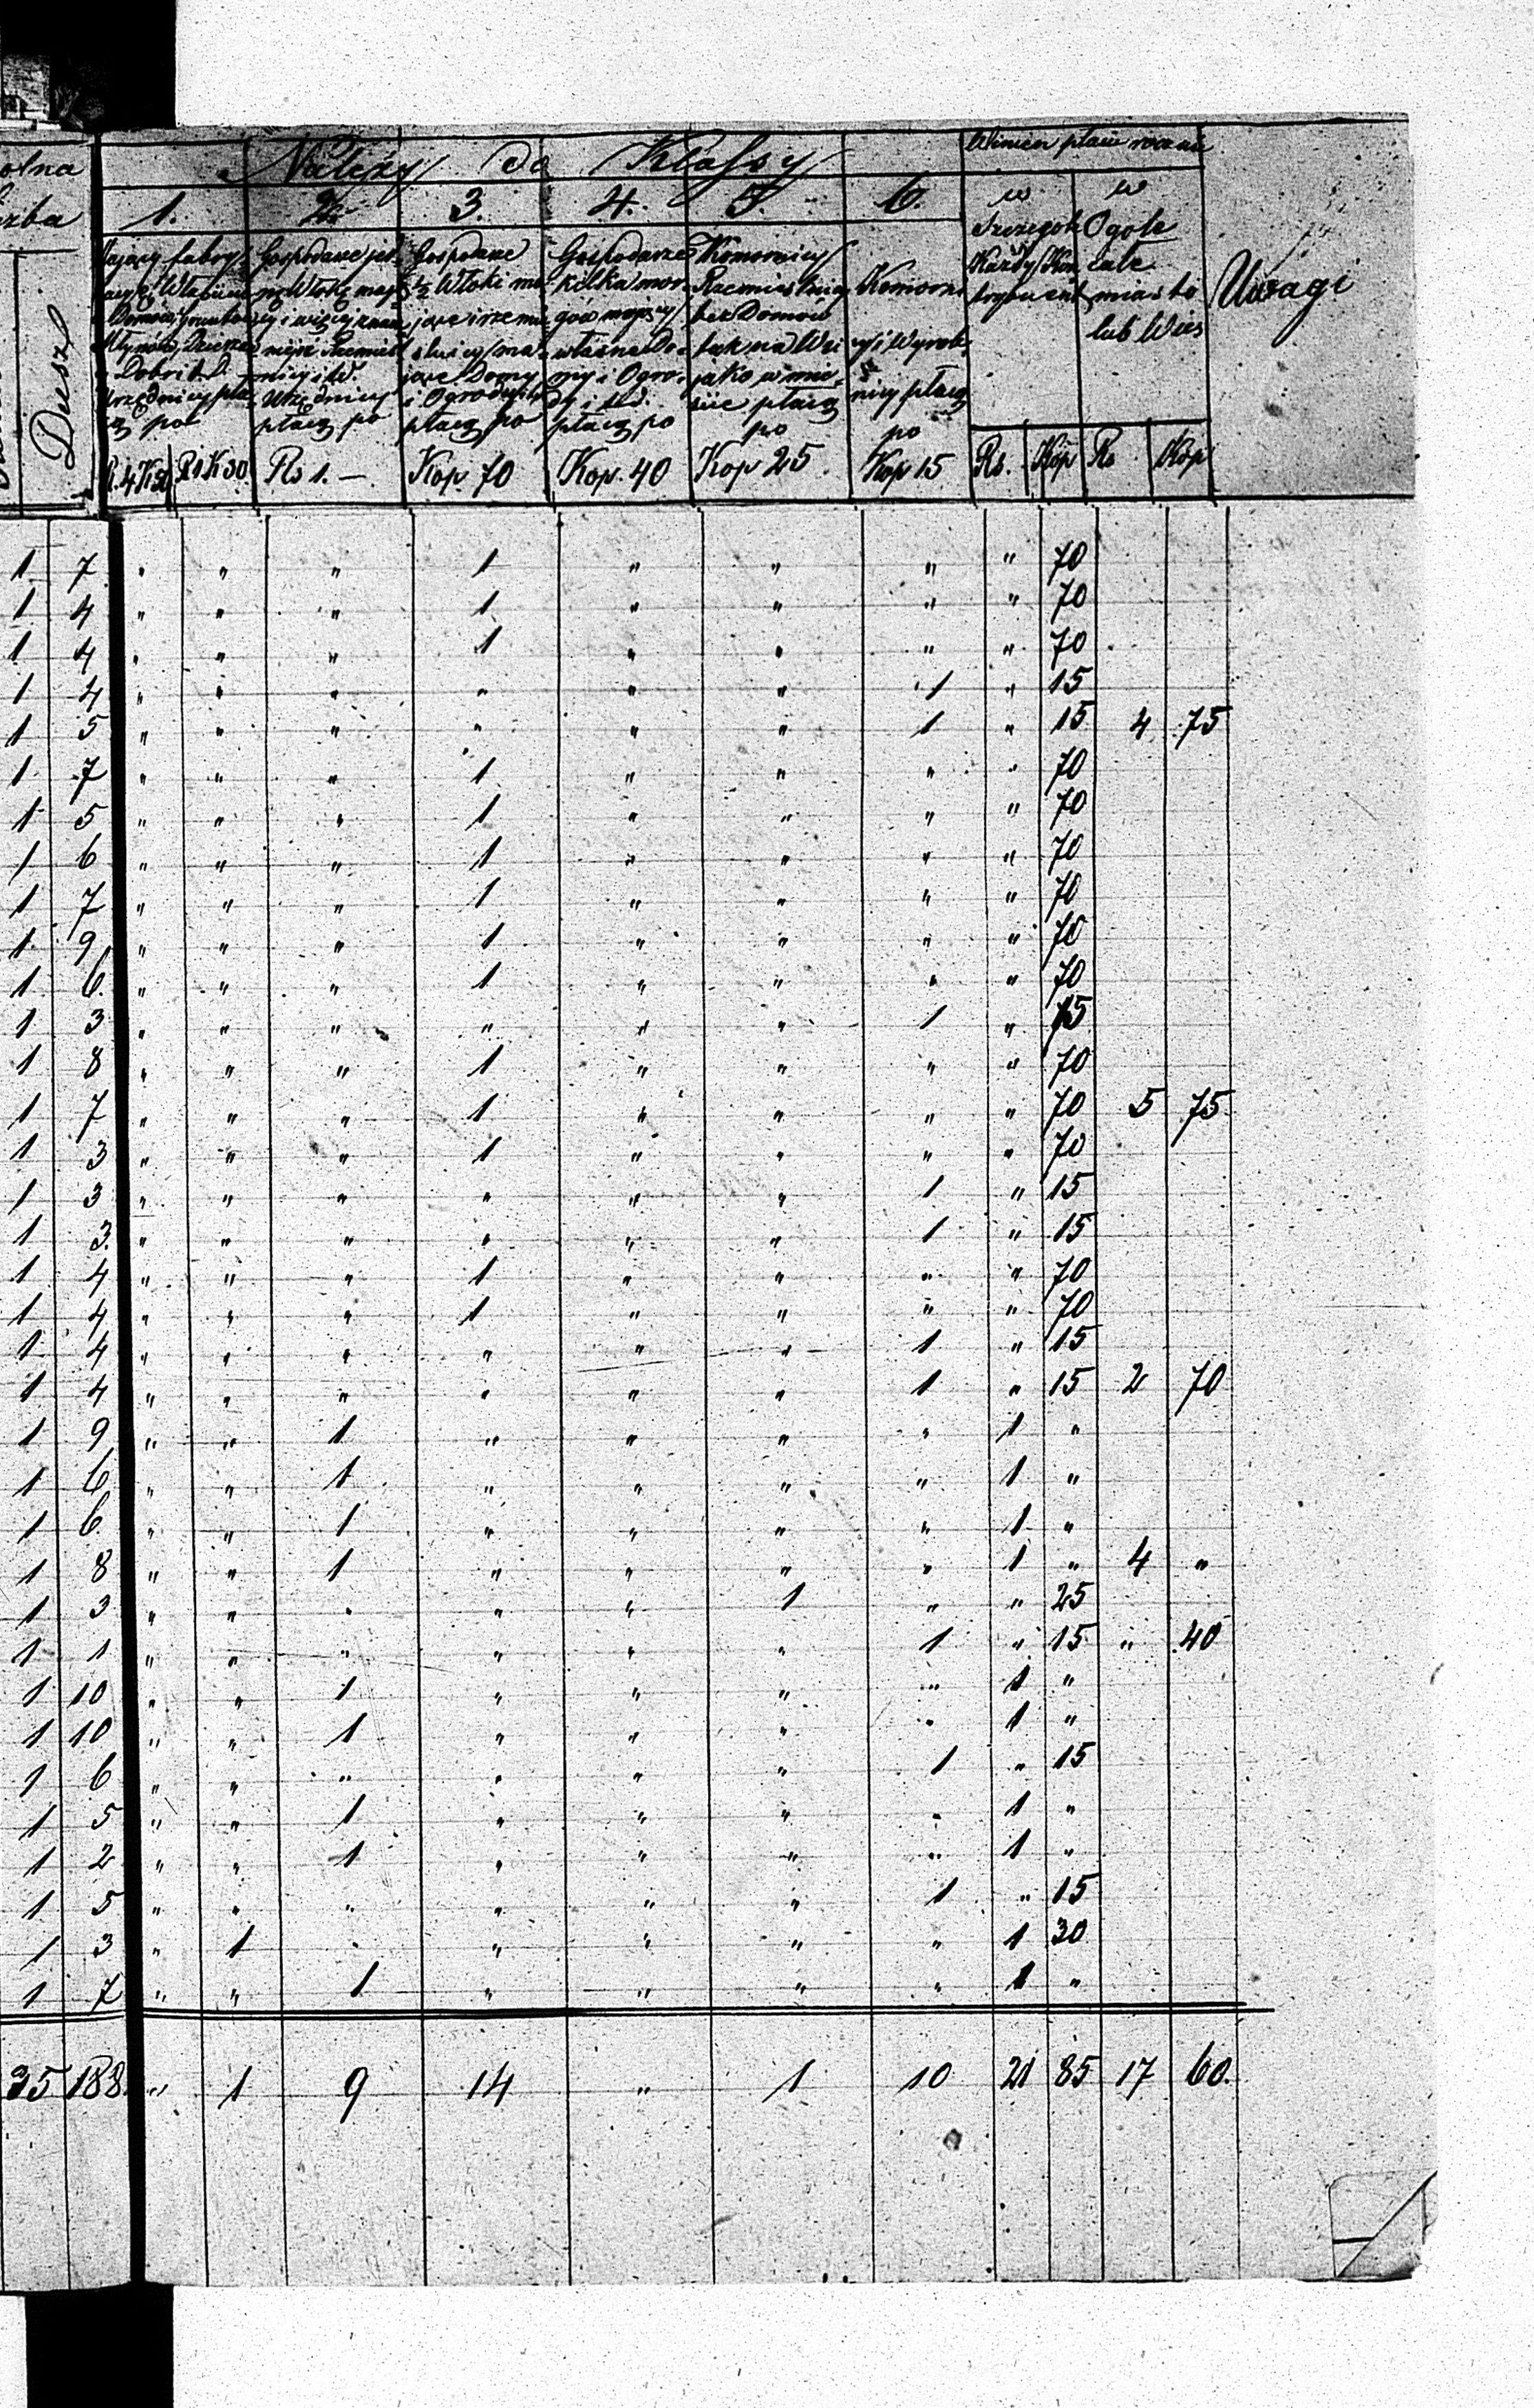 Należy do Klassy
Winien płacić rocznie
olna
1. 2. 3. 4. 5. 6.
w w
Szczegole Ogole
Każdy Kon całe
trybuent miasto
lub Wieś
Uwagi
Dusz
Gospodarze
płacą po
Gospodarze
½ Włoki ma-
jące i rzemie
ślnicy ma-
jące Domy
i Ogrody
płacą po
Gospodarze
kilka mor-
gów mający
własne Do-
my i Ogro-
dy i t.d.
płacą po
Komornicy
Rzemieślnicy
bez Domów
tak na Wsi
jako w mie-
ście płacą
po
Komorni
cy i Wyrob
nicy płacą
po
R. 4 K 50 Rs 1 K 30 Rs 1. — Kop. 70 Kop. 40 Kop 25. Kop 15 Rs. Kop Rs Kop
1 7 " " " 1 " " " " 70
1 4 " " " 1 " " " " 70
1 4 " " " 1 " " " " 70
1 4 " " " " " " 1 " 15
1 5 " " " " " " 1 " 15 4 75
1 7 " " " 1 " " " " 70
1 5 " " " 1 " " " " 70
1 6 " " " 1 " " " " 70
1 7 " " " 1 " " " " 70
1 9 " " " 1 " " " " 70
1 6 " " " 1 " " " " 70
1 3 " " " " " " 1 " 15
1 8 " " " 1 " " " " 70
1 7 " " " 1 " " " " 70 5 75
1 3 " " " 1 " " " " 70
1 3 " " " " " " 1 " 15
1 3 " " " " " " 1 " 15
1 4 " " " 1 " " " " 70
1 4 " " " 1 " " " " 70
1 4 " " " " " " 1 " 15
1 4 " " " " " " 1 " 15 2 70
1 9 " " 1 " " " " 1 "
1 6 " " 1 " " " " 1 "
1 6 " " 1 " " " " 1 "
1 8 " " 1 " " " " 1 " 4 "
1 3 " " " " " 1 " " 25
1 1 " " " " " " 1 " 15 " 40
1 10 " " 1 " " " " 1 "
1 10 " " 1 " " " " 1 "
1 6 " " " " " " 1 " 15
1 5 " " 1 " " " " 1 "
1 2 " " 1 " " " " 1 "
1 5 " " " " " " 1 " 15
1 3 " 1 " " " " " 1 30
1 7 " " 1 " " " " 1 "
35 188 " 1 9 14 " 1 10 21 85 17 60